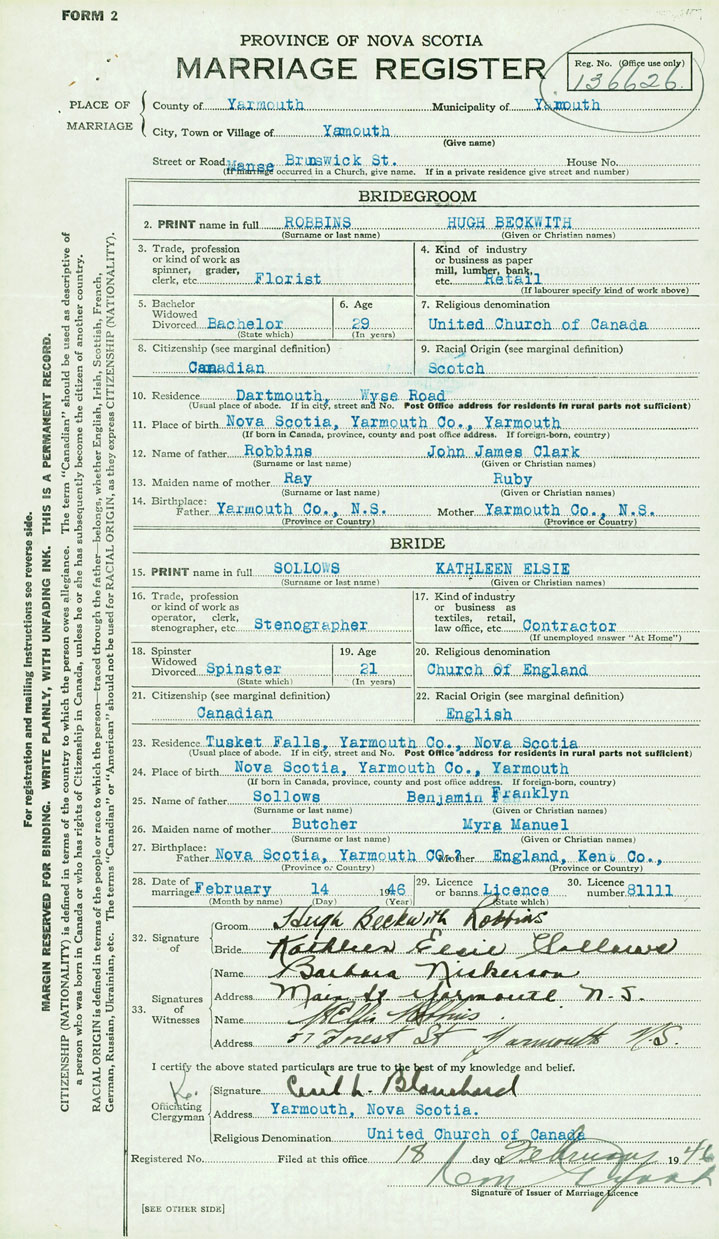 FORM 2
PROVINCE OF NOVA SCOTIA
MARRIAGE REGISTER
Reg. No. (Office use only)
136626.
PLACE OF MARRIAGE
County of Yarmouth Municipality of Yamouth
City, Town or Village of Yamouth
(Give name)
Street or Road Manse Brunswick St. House No.
(If marriage occurred in a Church, give name. If in a private residence give street and number)
BRIDEGROOM
2. PRINT name in full ROBBINS HUGH BECKWITH
(Surname or last name) (Given or Christian names)
3. Trade, profession or kind of work as spinner, grader, clerk, etc. Florist
4. Kind of industry or business as paper mill, lumber, bank, etc. Retail
(If labourer specify kind of work above)
5. Bachelor Widowed Divorced Bachelor
(State which)
6. Age 29
(In years)
7. Religious denomination
United Church of Canada
8. Citizenship (see marginal definition)
Canadian
9. Racial Origin (see marginal definition)
Scotch
10. Residence Dartmouth, Wyse Road
(Usual place of abode. If in city, street and No. Post Office address for residents in rural parts not sufficient)
11. Place of birth Nova Scotia, Yarmouth Co., Yarmouth
(If born in Canada, province, county and post office address. If foreign-born, country)
12. Name of father Robbins John James Clark
(Surname or last name) (Given or Christian names)
13. Maiden name of mother Ray Ruby
(Surname or last name) (Given or Christian names)
14. Birthplace: Father Yarmouth Co., N.S. Mother Yarmouth Co., N.S.
(Province or Country) (Province or Country)
BRIDE
15. PRINT name in full SOLLOWS KATHLEEN ELSIE
(Surname or last name) (Given or Christian names)
16. Trade, profession or kind of work as operator, clerk, stenographer, etc. Stenographer
17. Kind of industry or business as textiles, retail, law office, etc. Contractor
(If unemployed answer "At Home")
18. Spinster Widowed Divorced Spinster
(State which)
19. Age 21
(In years)
20. Religious denomination
Church of England
21. Citizenship (see marginal definition)
Canadian
22. Racial Origin (see marginal definition)
English
23. Residence Tusket Falls, Yarmouth Co., Nova Scotia
(Usual place of abode. If in city, street and No. Post Office address for residents in rural parts not sufficient)
24. Place of birth Nova Scotia, Yarmouth Co., Yarmouth
(If born in Canada, province, county and post office address. If foreign-born, country)
25. Name of father Sollows Benjamin Franklyn
(Surname or last name) (Given or Christian names)
26. Maiden name of mother Butcher Myra Manuel
(Surname or last name) (Given or Christian names)
27. Birthplace: Father Nova Scotia, Yarmouth CO.? Mother England, Kent Co.,
(Province or Country) (Province or Country)
28. Date of marriage February 14 1946
(Month by name) (Day) (Year)
29. Licence or banns Licence
(State which)
30. Licence number 81111
32. Signature of
Groom Hugh Beckwith Robbins
Bride Kathleen Elsie Sollows
33. Signatures of Witnesses
Name Barbara Nickerson
Address Main St Yarmouth N.S.
Name Robbins
Address 57 Forest St Yarmouth N.S.
I certify the above stated particulars are true to the best of my knowledge and belief.
Officiating Clergyman
Signature Cecil L. Blanchard
Address Yarmouth, Nova Scotia.
Religious Denomination United Church of Canada
Registered No. Filed at this office 18 day of February 1946
Signature of Issuer of Marriage Licence
[SEE OTHER SIDE]
For registration and mailing instructions see reverse side.
MARGIN RESERVED FOR BINDING. WRITE PLAINLY, WITH UNFADING INK. THIS IS A PERMANENT RECORD.
CITIZENSHIP (NATIONALITY) is defined in terms of the country to which the person owes allegiance. The term "Canadian" should be used as descriptive of
a person who was born in Canada or who has rights of Citizenship in Canada, unless he or she has subsequently become the citizen of another country.
RACIAL ORIGIN is defined in terms of the people or race to which the person—traced through the father—belongs, whether English, Irish, Scottish, French,
German, Russian, Ukrainian, etc. The terms "Canadian" or "American" should not be used for RACIAL ORIGIN, as they express CITIZENSHIP (NATIONALITY).